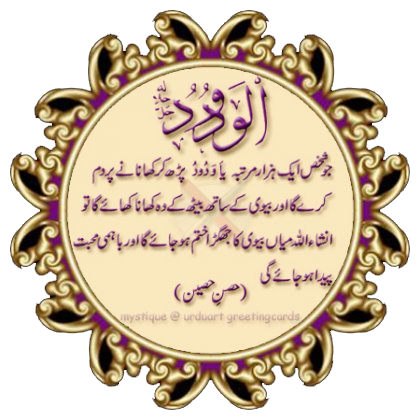 الودود جل جلالہ
جو شخص ایک ہزار مرتبہ یا وَدُودُ پڑھ کر کھانا نے پر دم
کرے گا اور بیوی کے ساتھ بیٹھ کے وہ کھانا کھائے گا تو
انشاء اللہ میاں بیوی کا جھگڑا ختم ہو جائے گا اور باہمی محبت
پیدا ہو جائے گی
(حصنِ حصین)
mystique @ urduart greetingcards